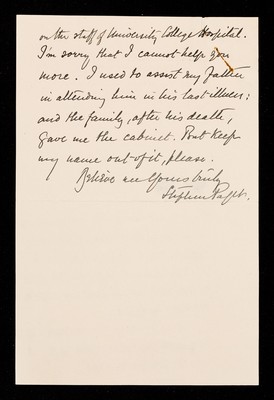 on the staff of University College Hospital.
I'm sorry that I cannot help you
more. I used to assist my father
in attending him in his last illness:
and the family, after his death,
gave me the cabinet. But keep
my name out of it, please.
Believe me Yours truly
Stephen Paget.